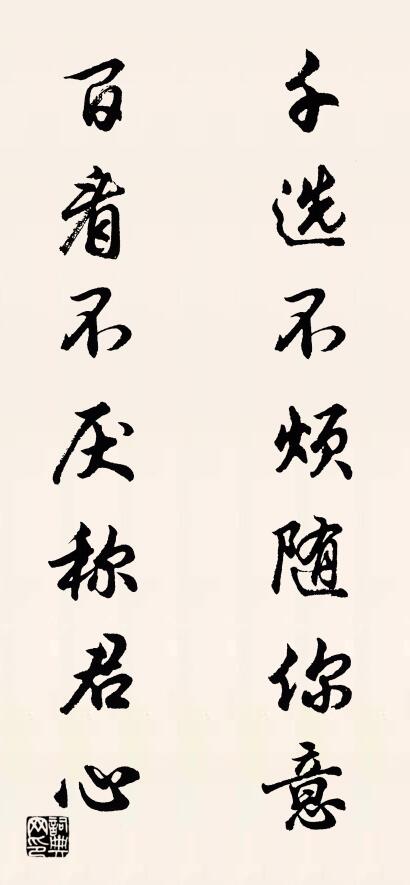 千选不烦随你意
百看不厌称君心
词典网印